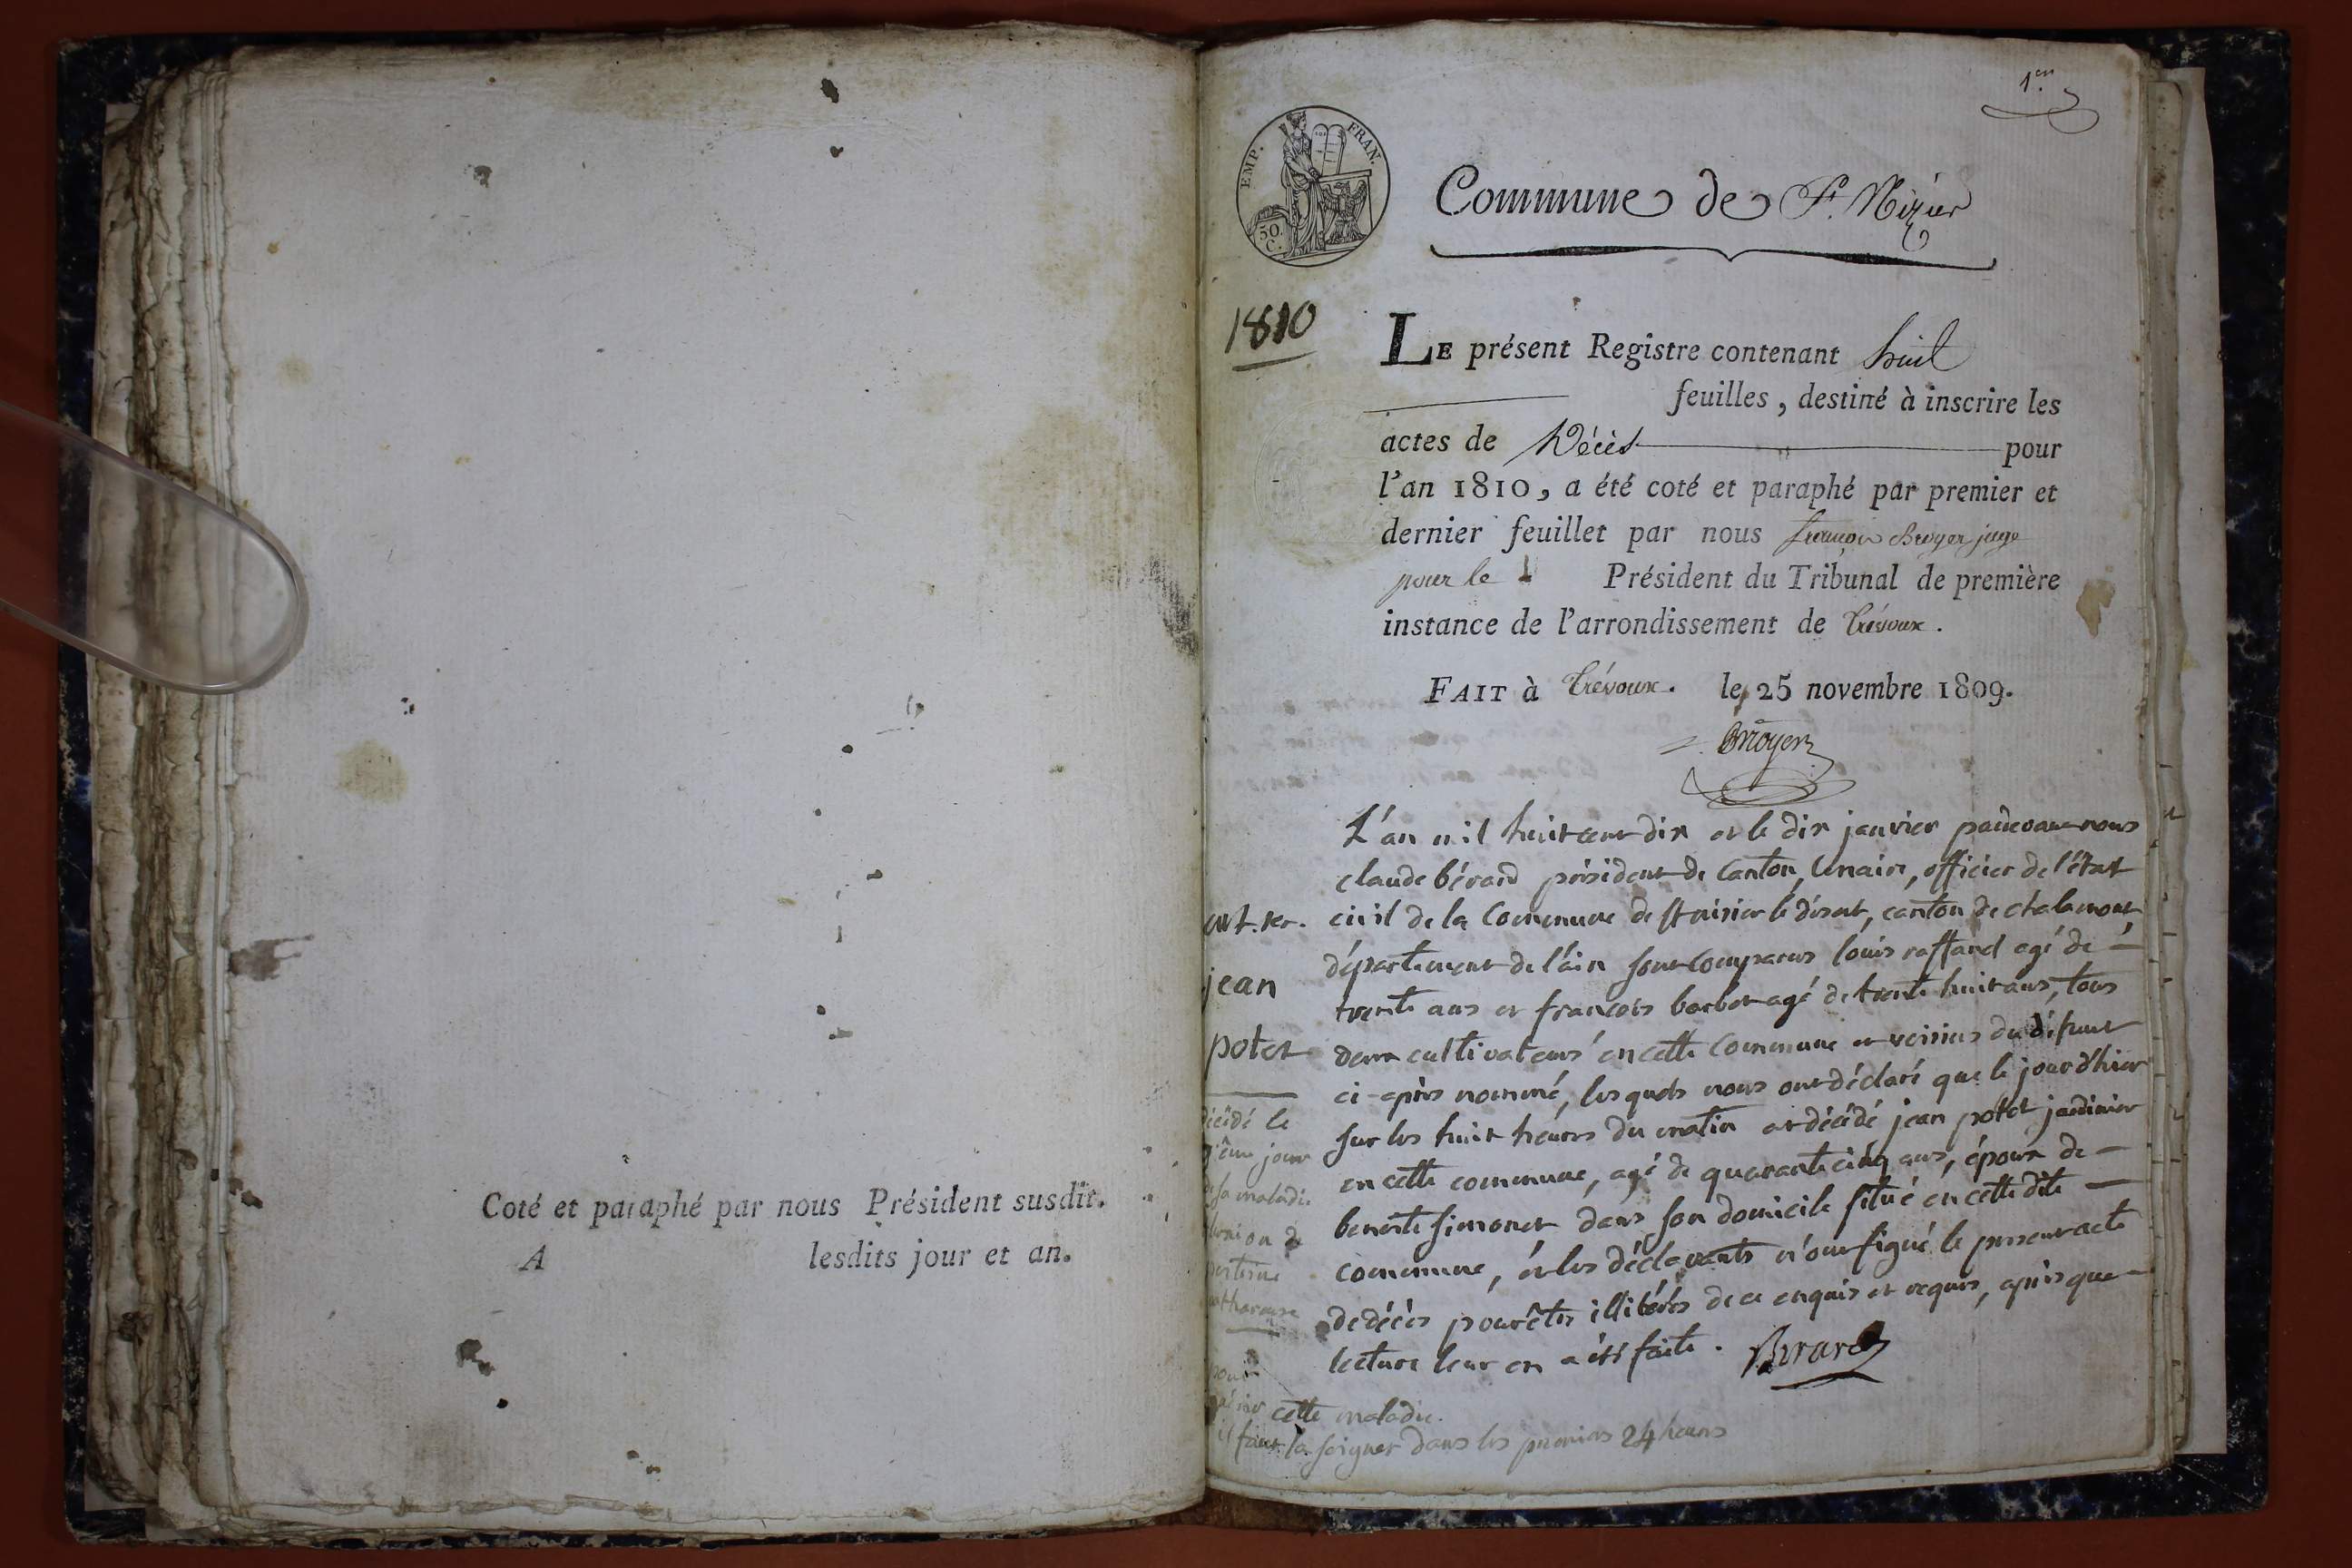 Coté et paraphé par nous Président susdit.
A lesdits jour et an.
1er
EMP. FRAN.
50.
C.
Commune de St. Nizier
1810
LE présent Registre contenant huit
feuilles, destiné à inscrire les
actes de Décès pour
l'an 1810, a été coté et paraphé par premier et
dernier feuillet par nous françois Broyer juge
pour le Président du Tribunal de première
instance de l'arrondissement de Trévoux.
FAIT à Trévoux. le 25 novembre 1809.
Broyer
L'an mil huit cent dix et le dix janvier pardevant nous
claude bérard président de Canton, Maire, officier de l'état
civil de la Commune de st nisier le désert, canton de chalamont
département de l'ain sont comparus louis raffand agé de
trente ans et françois barbet agé de trente huit ans, tous
deux cultivateurs en cette Commune et voisins du défunt
ci-après nommé, lesquels nous ont déclaré que le jour d'hier
sur les huit heures du matin est décédé jean potet jardinier
en cette commune, agé de quarante cinq ans, époux de
benoite simonet dans son domicile situé en cette dite
commune, et les déclarants n'ont signé le present acte
de décès pour être illitérés de ce enquis et requis, après que
lecture leur en a été faite. Berard
art. 1er.
jean
potet
décédé le
jour
de sa maladie
de
poitrine
pour
cette maladie.
il faut la soigner dans les premiers 24 heures